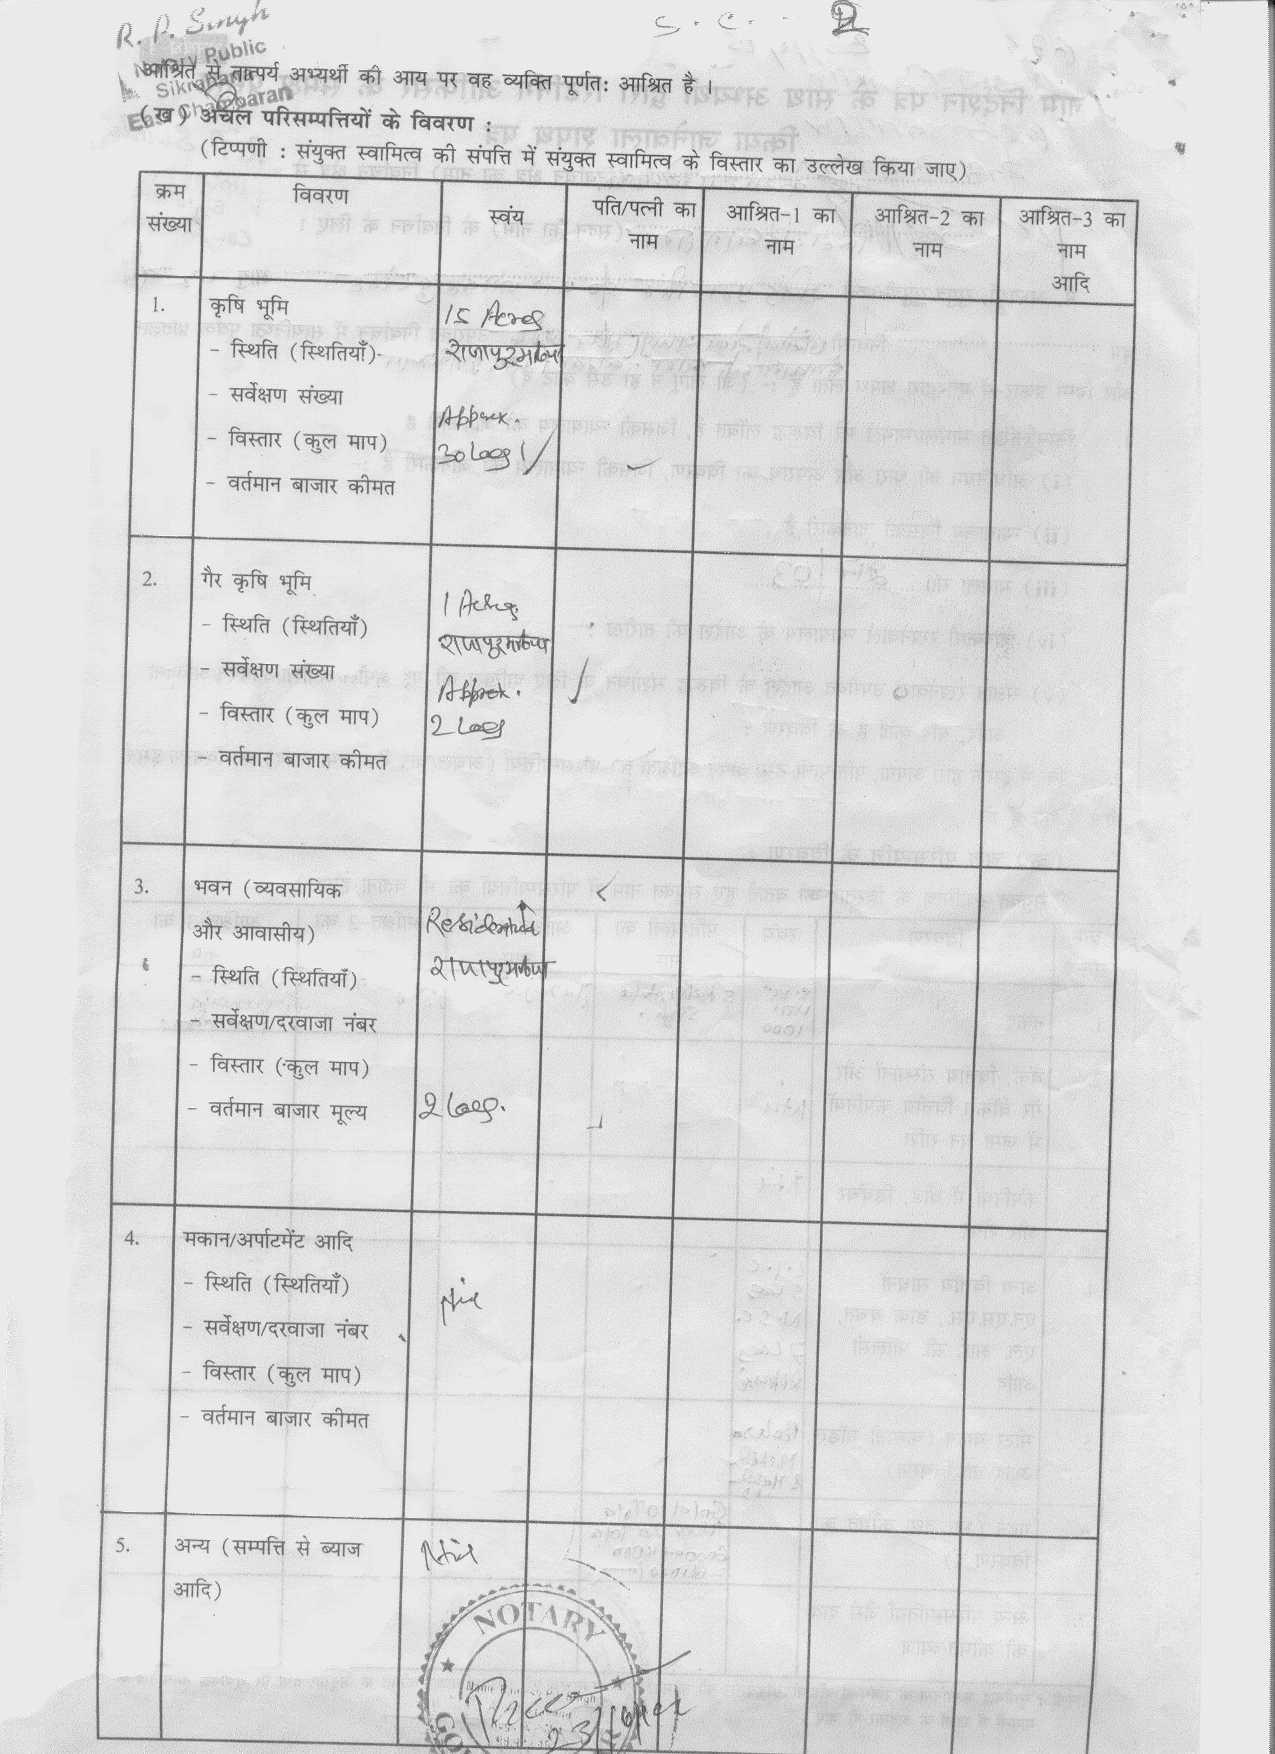 R. P. Singh
Notary Public
Sikrahana
East Champaran
S. C. -
आश्रित से तात्पर्य अभ्यर्थी की आय पर वह व्यक्ति पूर्णतः आश्रित है ।
(ख) अचल परिसम्पत्तियों के विवरण :
(टिप्पणी : संयुक्त स्वामित्व की संपत्ति में संयुक्त स्वामित्व के विस्तार का उल्लेख किया जाए)
क्रम संख्या
विवरण
स्वंय
पति/पत्नी का नाम
आश्रित-1 का नाम
आश्रित-2 का नाम
आश्रित-3 का नाम आदि
1.
कृषि भूमि
15 Acres
- स्थिति (स्थितियाँ)
राजापुरमठिया
- सर्वेक्षण संख्या
Approx.
- विस्तार (कुल माप)
30 Lacs
- वर्तमान बाजार कीमत
2.
गैर कृषि भूमि
1 Acre
- स्थिति (स्थितियाँ)
राजापुरमठिया
- सर्वेक्षण संख्या
Approx.
- विस्तार (कुल माप)
2 Lacs
- वर्तमान बाजार कीमत
3.
भवन (व्यवसायिक
और आवासीय)
Residential
- स्थिति (स्थितियाँ)
राजापुरमठिया
- सर्वेक्षण/दरवाजा नंबर
- विस्तार (कुल माप)
- वर्तमान बाजार मूल्य
2 Lacs.
4.
मकान/अर्पाटमेंट आदि
- स्थिति (स्थितियाँ)
Nil
- सर्वेक्षण/दरवाजा नंबर
- विस्तार (कुल माप)
- वर्तमान बाजार कीमत
5.
अन्य (सम्पत्ति से ब्याज
आदि)
Nil
NOTARY